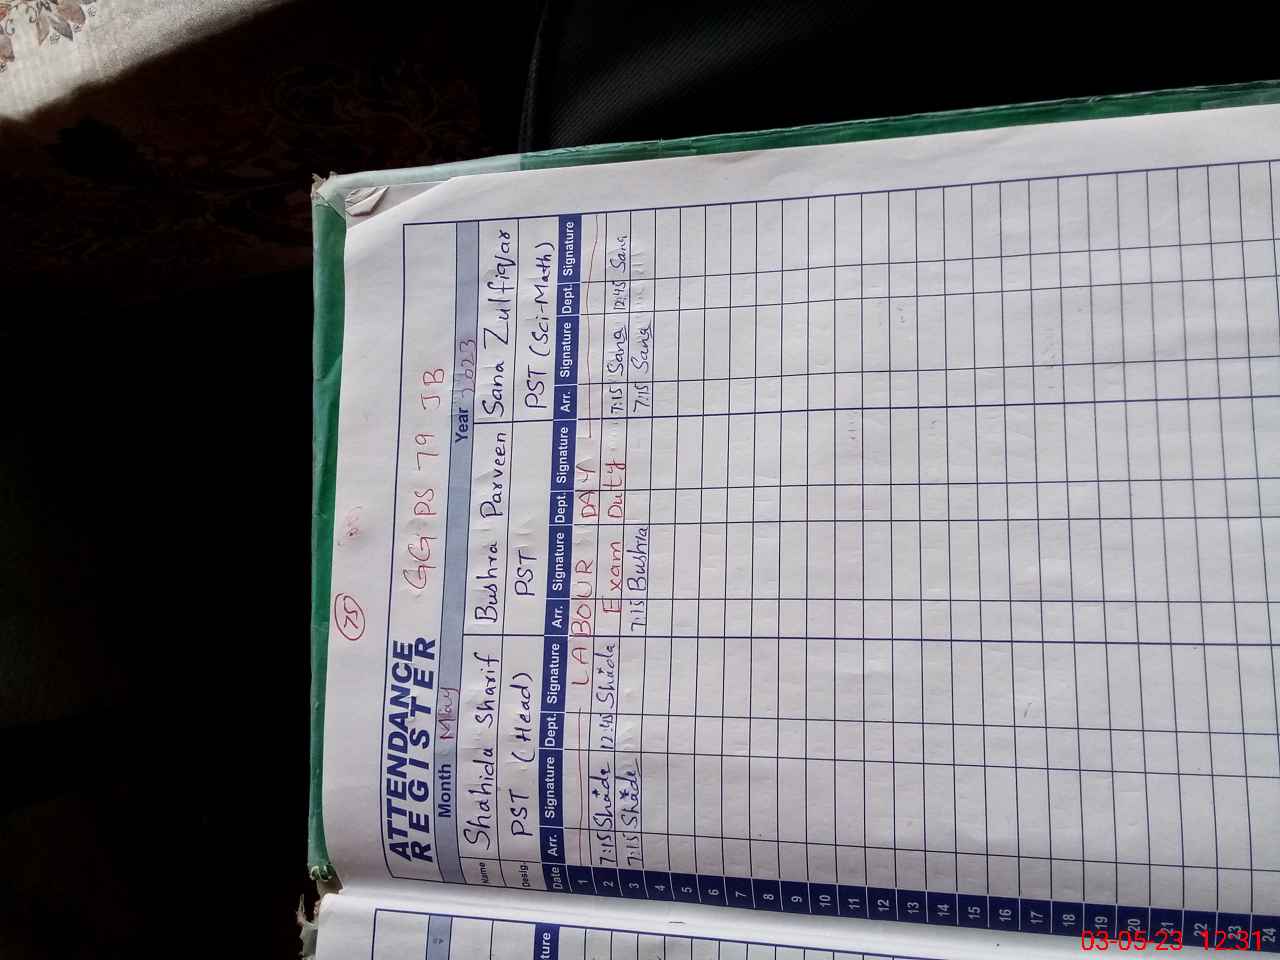 75
ATTENDANCE REGISTER GGPS 79 JB
Month May Year 2023
Name Shahida Sharif Bushra Parveen Sana Zulfiqar
Desig. PST (Head) PST PST (Sci-Math)
Date Arr. Signature Dept. Signature Arr. Signature Dept. Signature Arr. Signature Dept. Signature
1 LABOUR DAY
2 7:15 12:45 Exam Duty 7:15 Sana 12:45 Sana
3 7:15 7:15 Bushra 7:15 Sana
4
5
6
7
8
9
10
11
12
13
14
15
16
17
18
19
20
21
22
23
24
ture
03-05-23 12:31